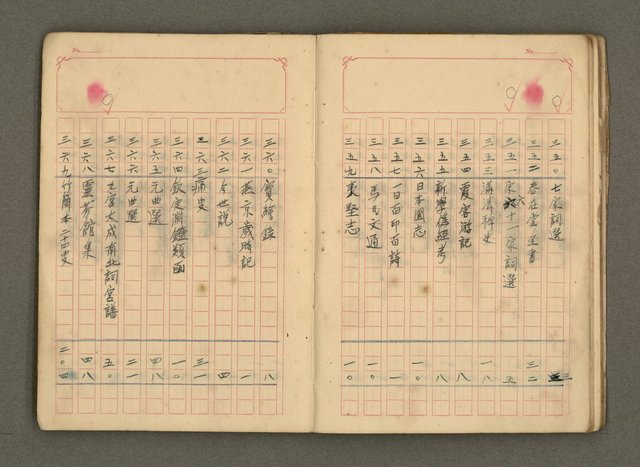 No.
三五〇 七家詞選 三
三五二 春在堂全書 三二
三五一 宋六十一家詞選 五
三五三 清稗史 一八
三五四 霞客游記 八
三五五 新學偽經考 八
三五六 日本國志 一〇
三五七 一日百印百詩 一
三五八 馬氏文通 一〇
三五九 夷堅志 一〇
No.
三六〇 寶繪錄 八
三六一 燕京歲時記 一
三六二 今世說 四
三六三 痛史 三一
三六四 欽定淵鑑類函 一〇
三六五 元曲選 四八
三六六 元曲選 二一
三六七 九宮大成南北詞宮譜 五〇
三六八 靈芬館集 四八
三六九 竹簡本二十四史 二〇四